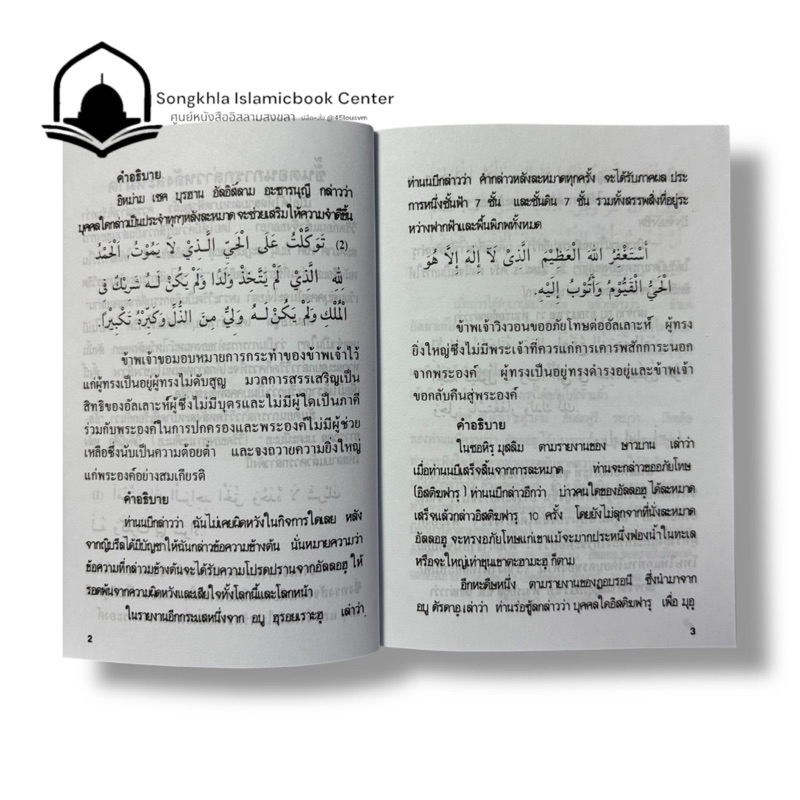 Songkhla Islamicbook Center
ศูนย์หนังสืออิสลามสงขลา
คำอธิบาย
อิหม่าม เชค บุรฮาน อัลอิสลาม อะซารนุญี กล่าวว่า
บุคคลใดกล่าวเป็นประจำทุกๆหลังละหมาด จะช่วยเสริมให้ความจำดีขึ้น
(2) تَوَكَّلْتُ عَلَى الْحَيِّ الَّذِيْ لَا يَمُوْتُ، اَلْحَمْدُ
لِلّٰهِ الَّذِيْ لَمْ يَتَّخِذْ وَلَدًا وَلَمْ يَكُنْ لَهُ شَرِيْكٌ فِى
الْمُلْكِ وَلَمْ يَكُنْ لَهُ وَلِيٌّ مِنَ الذُّلِّ وَكَبِّرْهُ تَكْبِيْرًا.
ข้าพเจ้าขอมอบหมายการกระทำของข้าพเจ้าไว้
แก่ผู้ทรงเป็นอยู่ผู้ทรงไม่ดับสูญ มวลการสรรเสริญเป็น
สิทธิของอัลเลาะห์ผู้ซึ่งไม่มีบุตรและไม่มีผู้ใดเป็นภาคี
ร่วมกับพระองค์ในการปกครองและพระองค์ไม่มีผู้ช่วย
เหลือซึ่งนับเป็นความต้อยต่ำ และจงถวายความยิ่งใหญ่
แก่พระองค์อย่างสมเกียรติ
คำอธิบาย
ท่านนบีกล่าวว่า ฉันไม่เคยผิดหวังในกิจการใดเลย หลัง
จากญิบรีลได้มีบัญชาให้ฉันกล่าวข้อความข้างต้น นั่นหมายความว่า
ข้อความที่กล่าวมข้างต้นจะได้รับความโปรดปรานจากอัลลอฮฺ ให้
รอดพ้นจากความผิดหวังและเสียใจทั้งโลกนี้และโลกหน้า
ในรายงานอีกกระแสหนึ่งจาก อบู ฮุรอยเราะฮฺ เล่าว่า
2
ท่านนบีกล่าวว่า ค้ากล่าวหลังละหมาดทุกครั้ง จะได้รับภาคผล ประ
การหนึ่งชั้นฟ้า 7 ชั้น และชั้นดิน 7 ชั้น รวมทั้งสรรพสิ่งที่อยู่ระ
หว่างฟากฟ้าและพื้นพิภพทั้งหมด
اَسْتَغْفِرُ اللهَ الْعَظِيْمَ الَّذِيْ لَا اِلٰهَ اِلَّا هُوَ
الْحَيُّ الْقَيُّوْمُ وَأَتُوْبُ اِلَيْهِ.
ข้าพเจ้าวิงวอนขออภัยโทษต่ออัลเลาะห์ ผู้ทรง
ยิ่งใหญ่ซึ่งไม่มีพระเจ้าที่ควรแก่การเคารพสักการะนอก
จากพระองค์ ผู้ทรงเป็นอยู่ทรงดำรงอยู่และข้าพเจ้า
ขอกลับคืนสู่พระองค์
คำอธิบาย
ในซอหิรฺ มุสลิม ตามรายงานของ ษาวบาน เล่าว่า
เมื่อท่านนบีเสร็จสิ้นจากการละหมาด ท่านจะกล่าวขออภัยโทษ
(อิสติฆฟารฺ) ท่านนบีกล่าวอีกว่า บ่าวคนใดของอัลลอฮฺ ได้ละหมาด
เสร็จแล้วกล่าวอิสติฆฟารฺ 10 ครั้ง โดยยังไม่ลุกจากที่นั่งละหมาด
อัลลอฮฺ จะทรงอภัยโทษแก่เขาแม้จะมากประหนึ่งฟองน้ำในทะเล
หรือจะใหญ่เท่าขุนเขาตะฮามะฮฺ ก็ตาม
อีกหะดีษหนึ่ง ตามรายงานของฏอบรอนี ซึ่งนำมาจาก
อบู ดัรดาอฺ เล่าว่า ท่านร่อซู้ลกล่าวว่า บุคคลใดอิสติฆฟารฺ เพื่อ มุอฺ
3